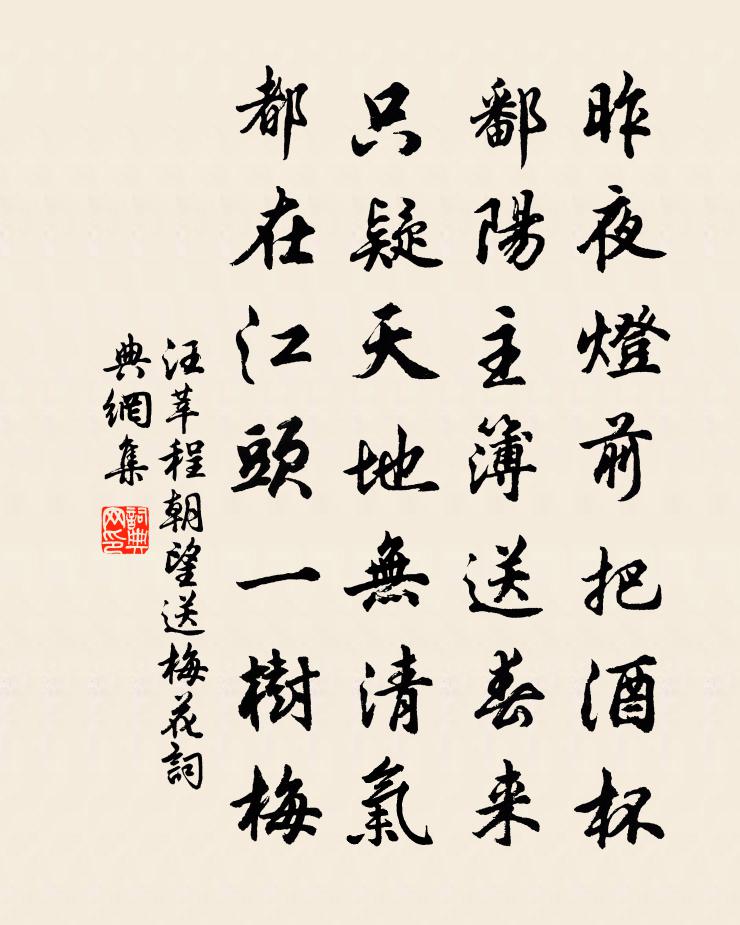 昨夜燈前把酒杯
鄱陽主簿送春来
只疑天地無清氣
都在江頭一樹梅
汪莘程朝望送梅花詞
典網集
詞典
网印